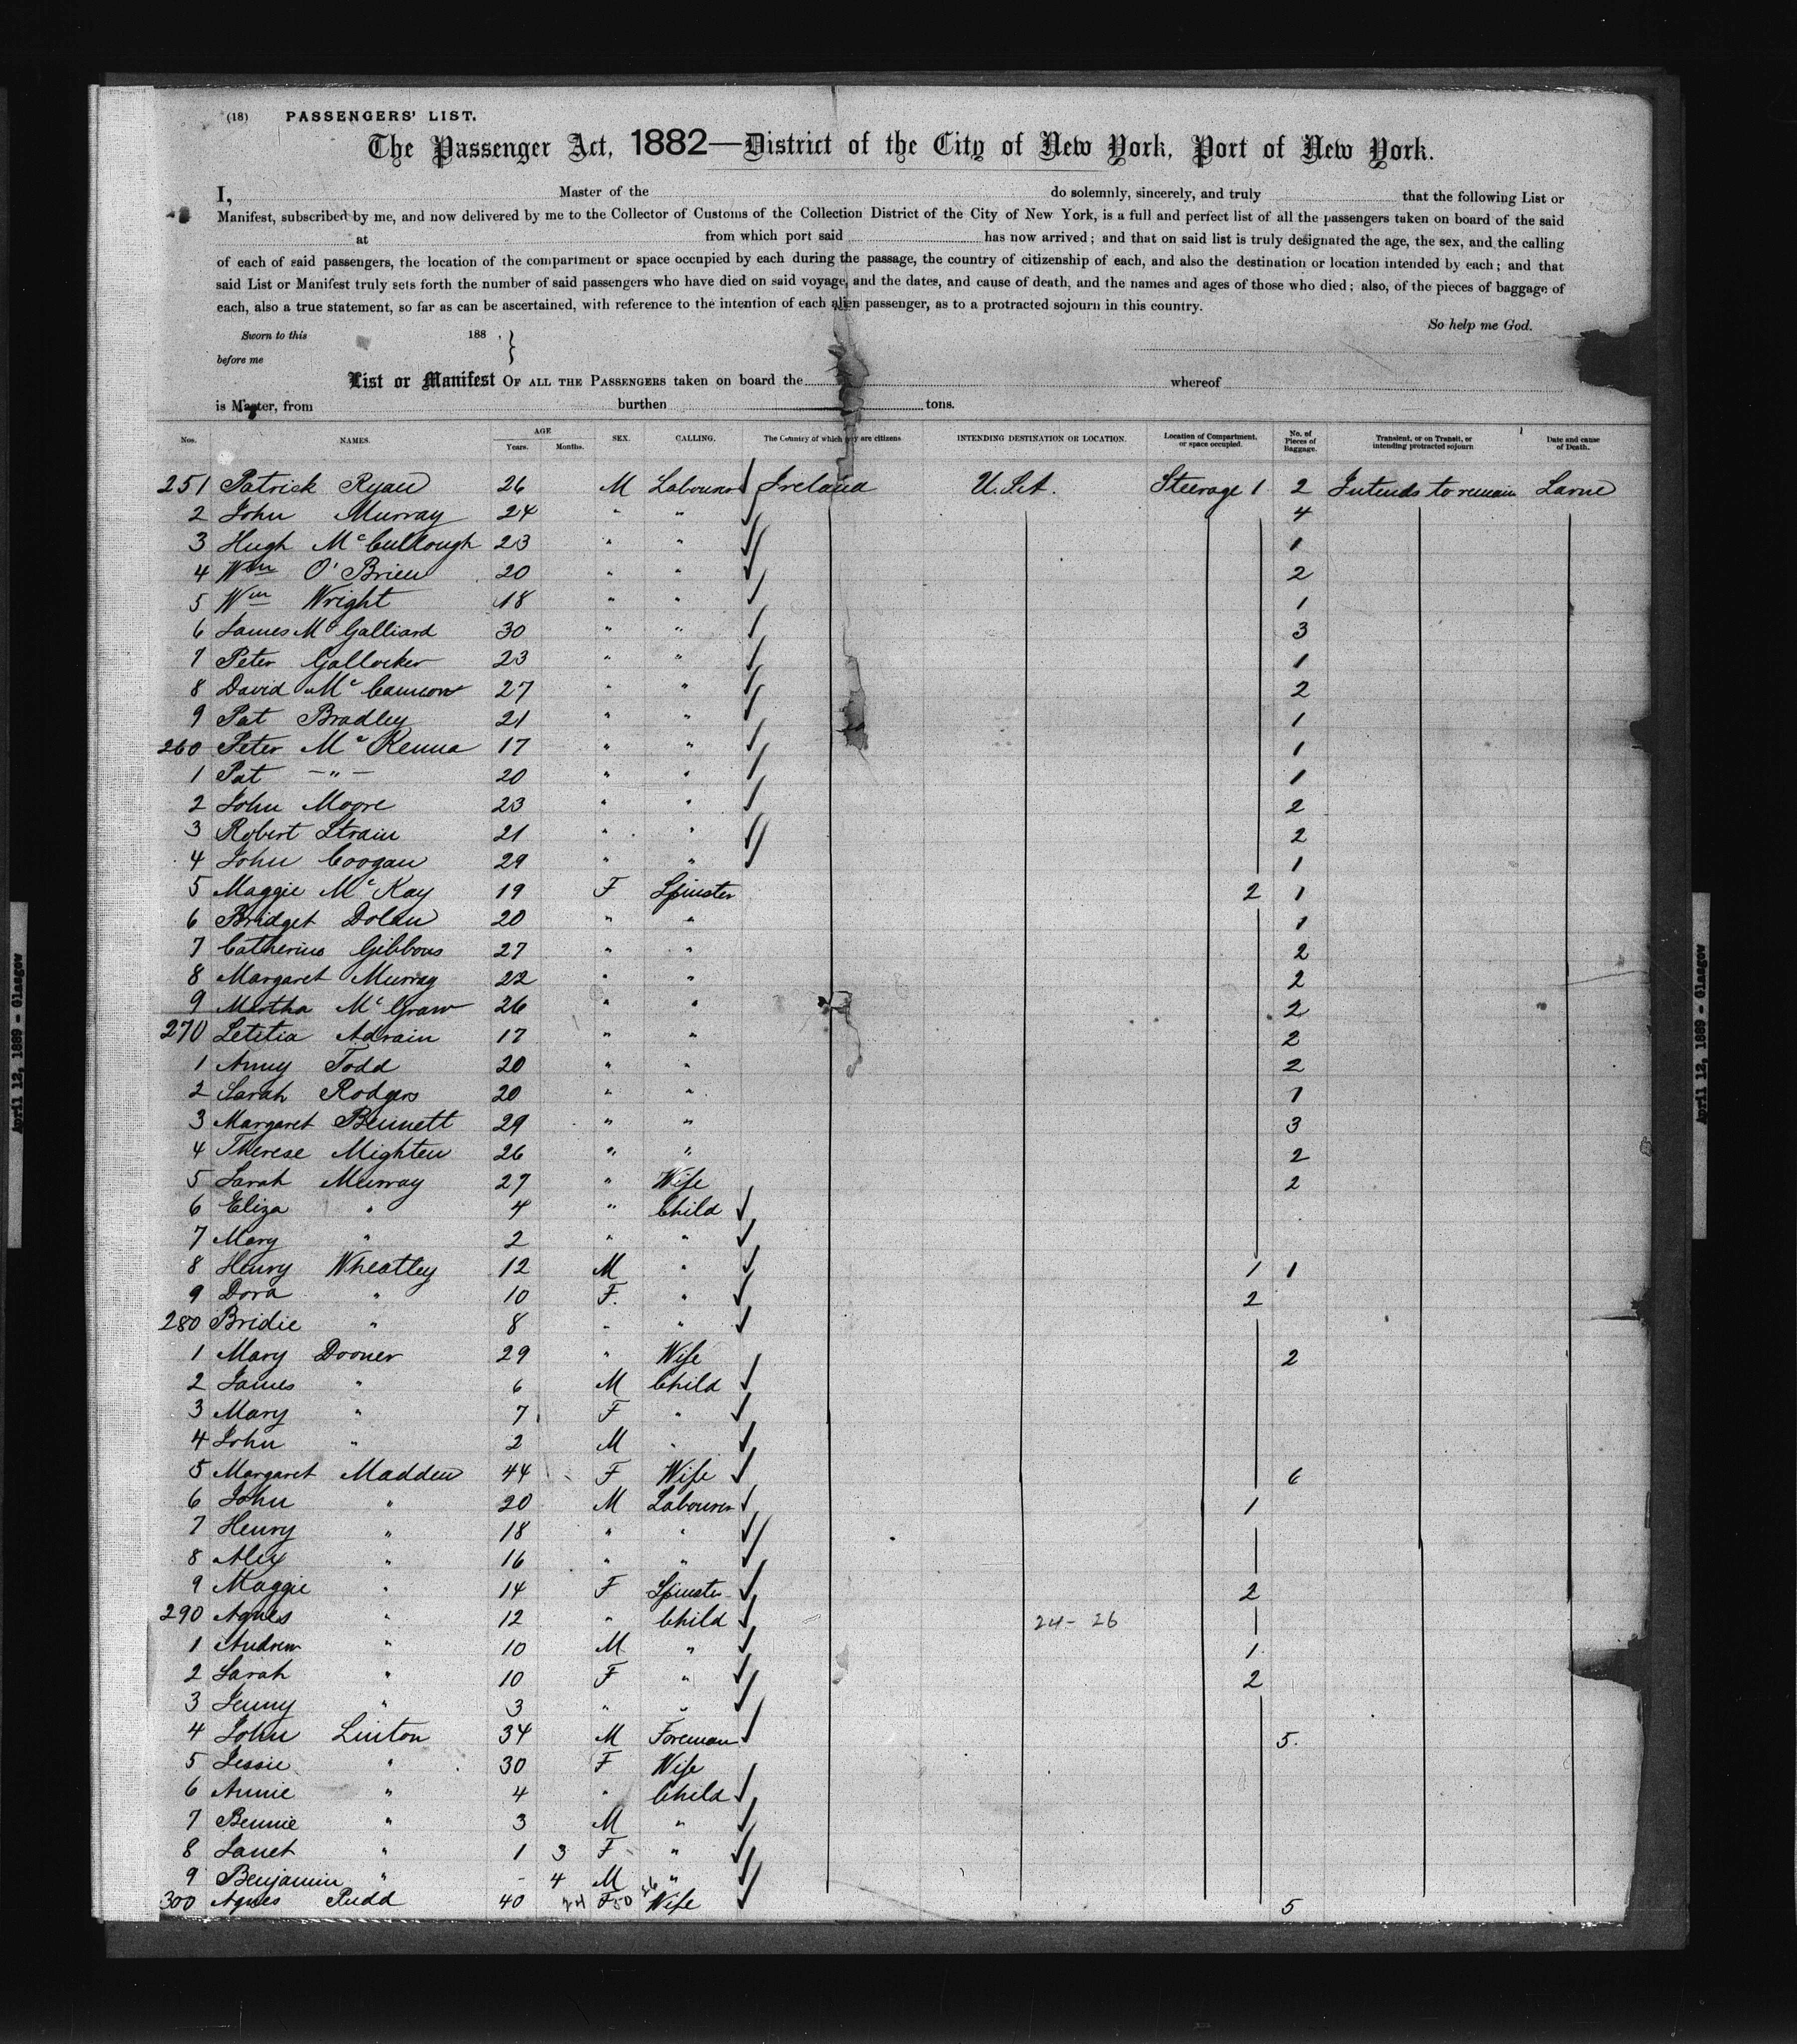 (18) PASSENGERS' LIST.
The Passenger Act, 1882—District of the City of New York, Port of New York.
I, Master of the do solemnly, sincerely, and truly that the following List or
Manifest, subscribed by me, and now delivered by me to the Collector of Customs of the Collection District of the City of New York, is a full and perfect list of all the passengers taken on board of the said
at from which port said has now arrived; and that on said list is truly designated the age, the sex, and the calling
of each of said passengers, the location of the compartment or space occupied by each during the passage, the country of citizenship of each, and also the destination or location intended by each; and that
said List or Manifest truly sets forth the number of said passengers who have died on said voyage, and the dates, and cause of death, and the names and ages of those who died; also, of the pieces of baggage of
each, also a true statement, so far as can be ascertained, with reference to the intention of each alien passenger, as to a protracted sojourn in this country.
So help me God.
Sworn to this 188 .
before me
List or Manifest OF ALL THE PASSENGERS taken on board the whereof
is Master, from burthen tons.
Nos. NAMES. AGE Years. Months. SEX. CALLING. The Country of which they are citizens INTENDING DESTINATION OR LOCATION. Location of Compartment, or space occupied. No. of Pieces of Baggage. Transient, or on Transit, or intending protracted sojourn Date and cause of Death.
251 Patrick Ryan 26 M Labourer Ireland U.S.A. Steerage 1 2 Intends to remain Larne
2 John Murray 24 " " 4
3 Hugh McCullough 23 " " 1
4 Wm O'Brien 20 " " 2
5 Wm Wright 18 " " 1
6 James McGalliard 30 " " 3
7 Peter Gallocker 23 " " 1
8 David McCannon 27 " " 2
9 Pat Bradley 21 " " 1
260 Peter McKenna 17 " " 1
1 Pat —"— 20 " " 1
2 John Moore 23 " " 2
3 Robert Strain 21 " " 2
4 John Coogan 29 " " 1
5 Maggie McKay 19 F Spinster 2 1
6 Bridget Dolan 20 " " 1
7 Catherine Gibbons 27 " " 2
8 Margaret Murray 22 " " 2
9 Martha McGraw 26 " " 2
270 Letitia Adrain 17 " " 2
1 Anny Todd 20 " " 2
2 Sarah Rodgers 20 " " 1
3 Margaret Bennett 29 " " 3
4 Therese Mighten 26 " " 2
5 Sarah Murray 27 " Wife 2
6 Eliza " 4 " Child
7 Mary " 2 " "
8 Henry Wheatley 12 M " 1 1
9 Dora " 10 F. " 2
280 Bridie " 8 " "
1 Mary Dooner 29 " Wife 2
2 James " 6 M Child
3 Mary " 7 F "
4 John " 2 M "
5 Margaret Madden 44 F Wife 6
6 John " 20 M Labourer 1
7 Henry " 18 " "
8 Alex " 16 " "
9 Maggie " 14 F Spinster 2
290 Agnes " 12 " Child 24 - 26
1 Andrew " 10 M " 1
2 Sarah " 10 F " 2
3 Jenny " 3 " "
4 John Linton 34 M Foreman 5.
5 Jessie " 30 F Wife
6 Annie " 4 " Child
7 Bennie " 3 M "
8 Janet " 1 3 F "
9 Benjamin " - 4 M "
300 Agnes Rudd 40 24 F 50 26 Wife 5
April 12, 1889 - Glasgow
April 12, 1889 - Glasgow